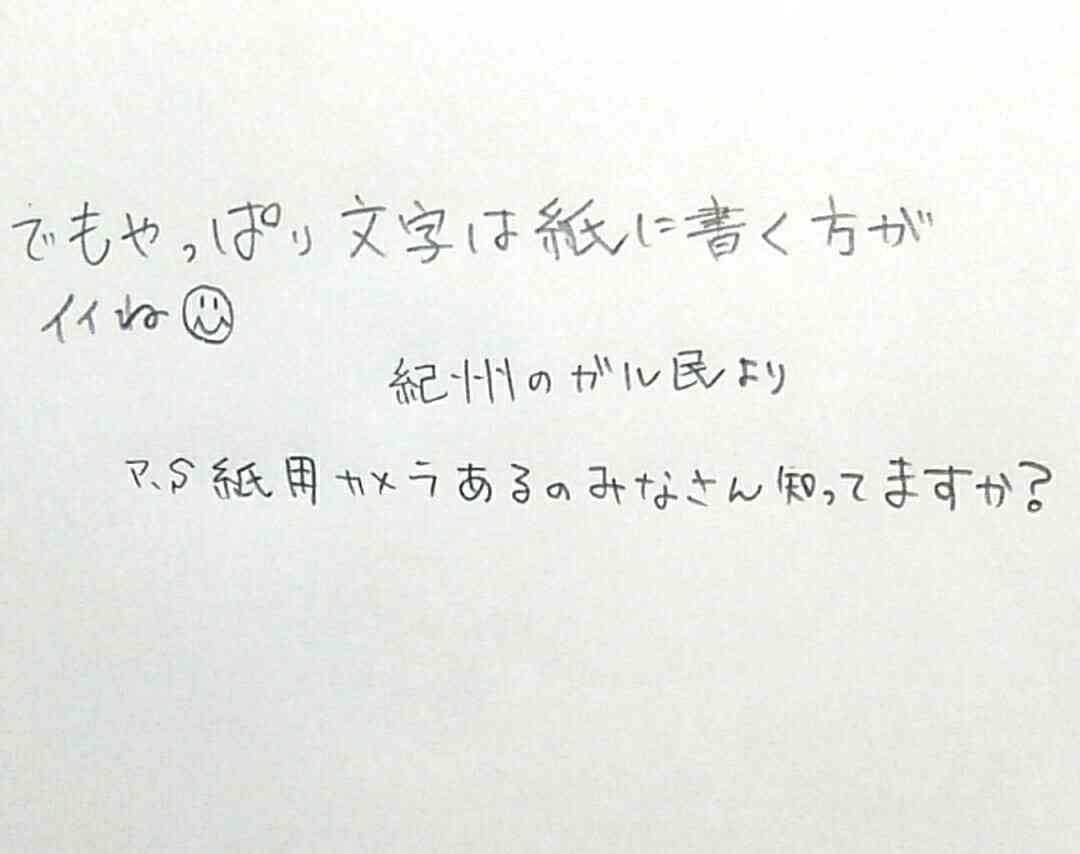 でもやっぱり文字は紙に書く方が
イイね
紀州のガル民より
P.S 紙用カメラあるのみなさん知ってますか?